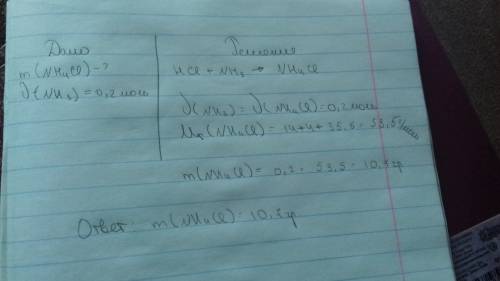 Дано
m(NH4Cl)-?
ν(NH3) = 0,2 моль
Решение
HCl + NH3 → NH4Cl
ν(NH3) = ν(NH4Cl) = 0,2 моль
Mr(NH4Cl) = 14+4+35,5 = 53,5 г/моль
m(NH4Cl) = 0,2 · 53,5 = 10,7 гр
Ответ: m(NH4Cl) = 10,7 гр